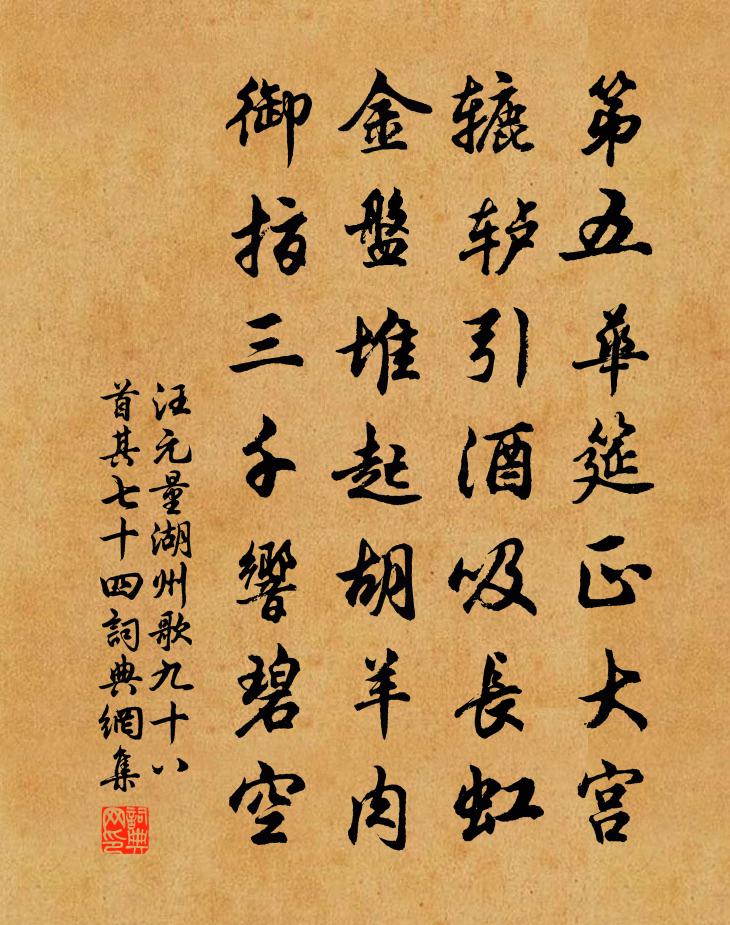 第五華筵正大宮
辘轳引酒吸長虹
金盤堆起胡羊肉
御指三千響碧空
汪元量湖州歌九十八
首其七十四詞典網集
詞典網印